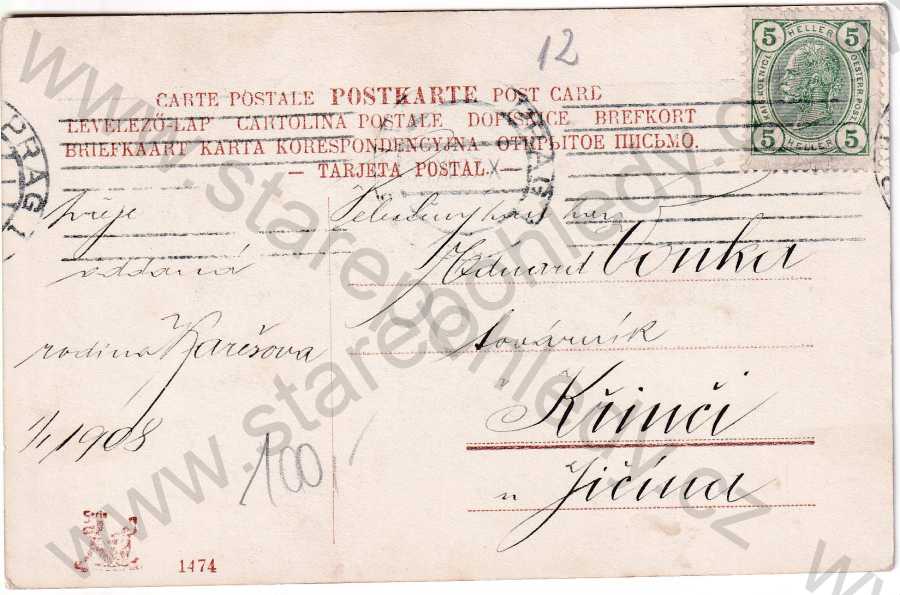 12
5 HELLER 5
CARTE POSTALE POSTKARTE POST CARD
LEVELEZŐ-LAP CARTOLINA POSTALE DOPISNICE BREFKORT
BRIEFKAART KARTA KORESPONDENCYJNA ОТКРЫТОЕ ПИСЬМО.
— TARJETA POSTAL. —
5 HELLER 5
PRAG
PRAG
přeje
oddaná
Eduard Vonka
rodina Karešova
továrník
v Křinči
1/1 1908
100
u Jičína
1474
www.starepohledy.cz